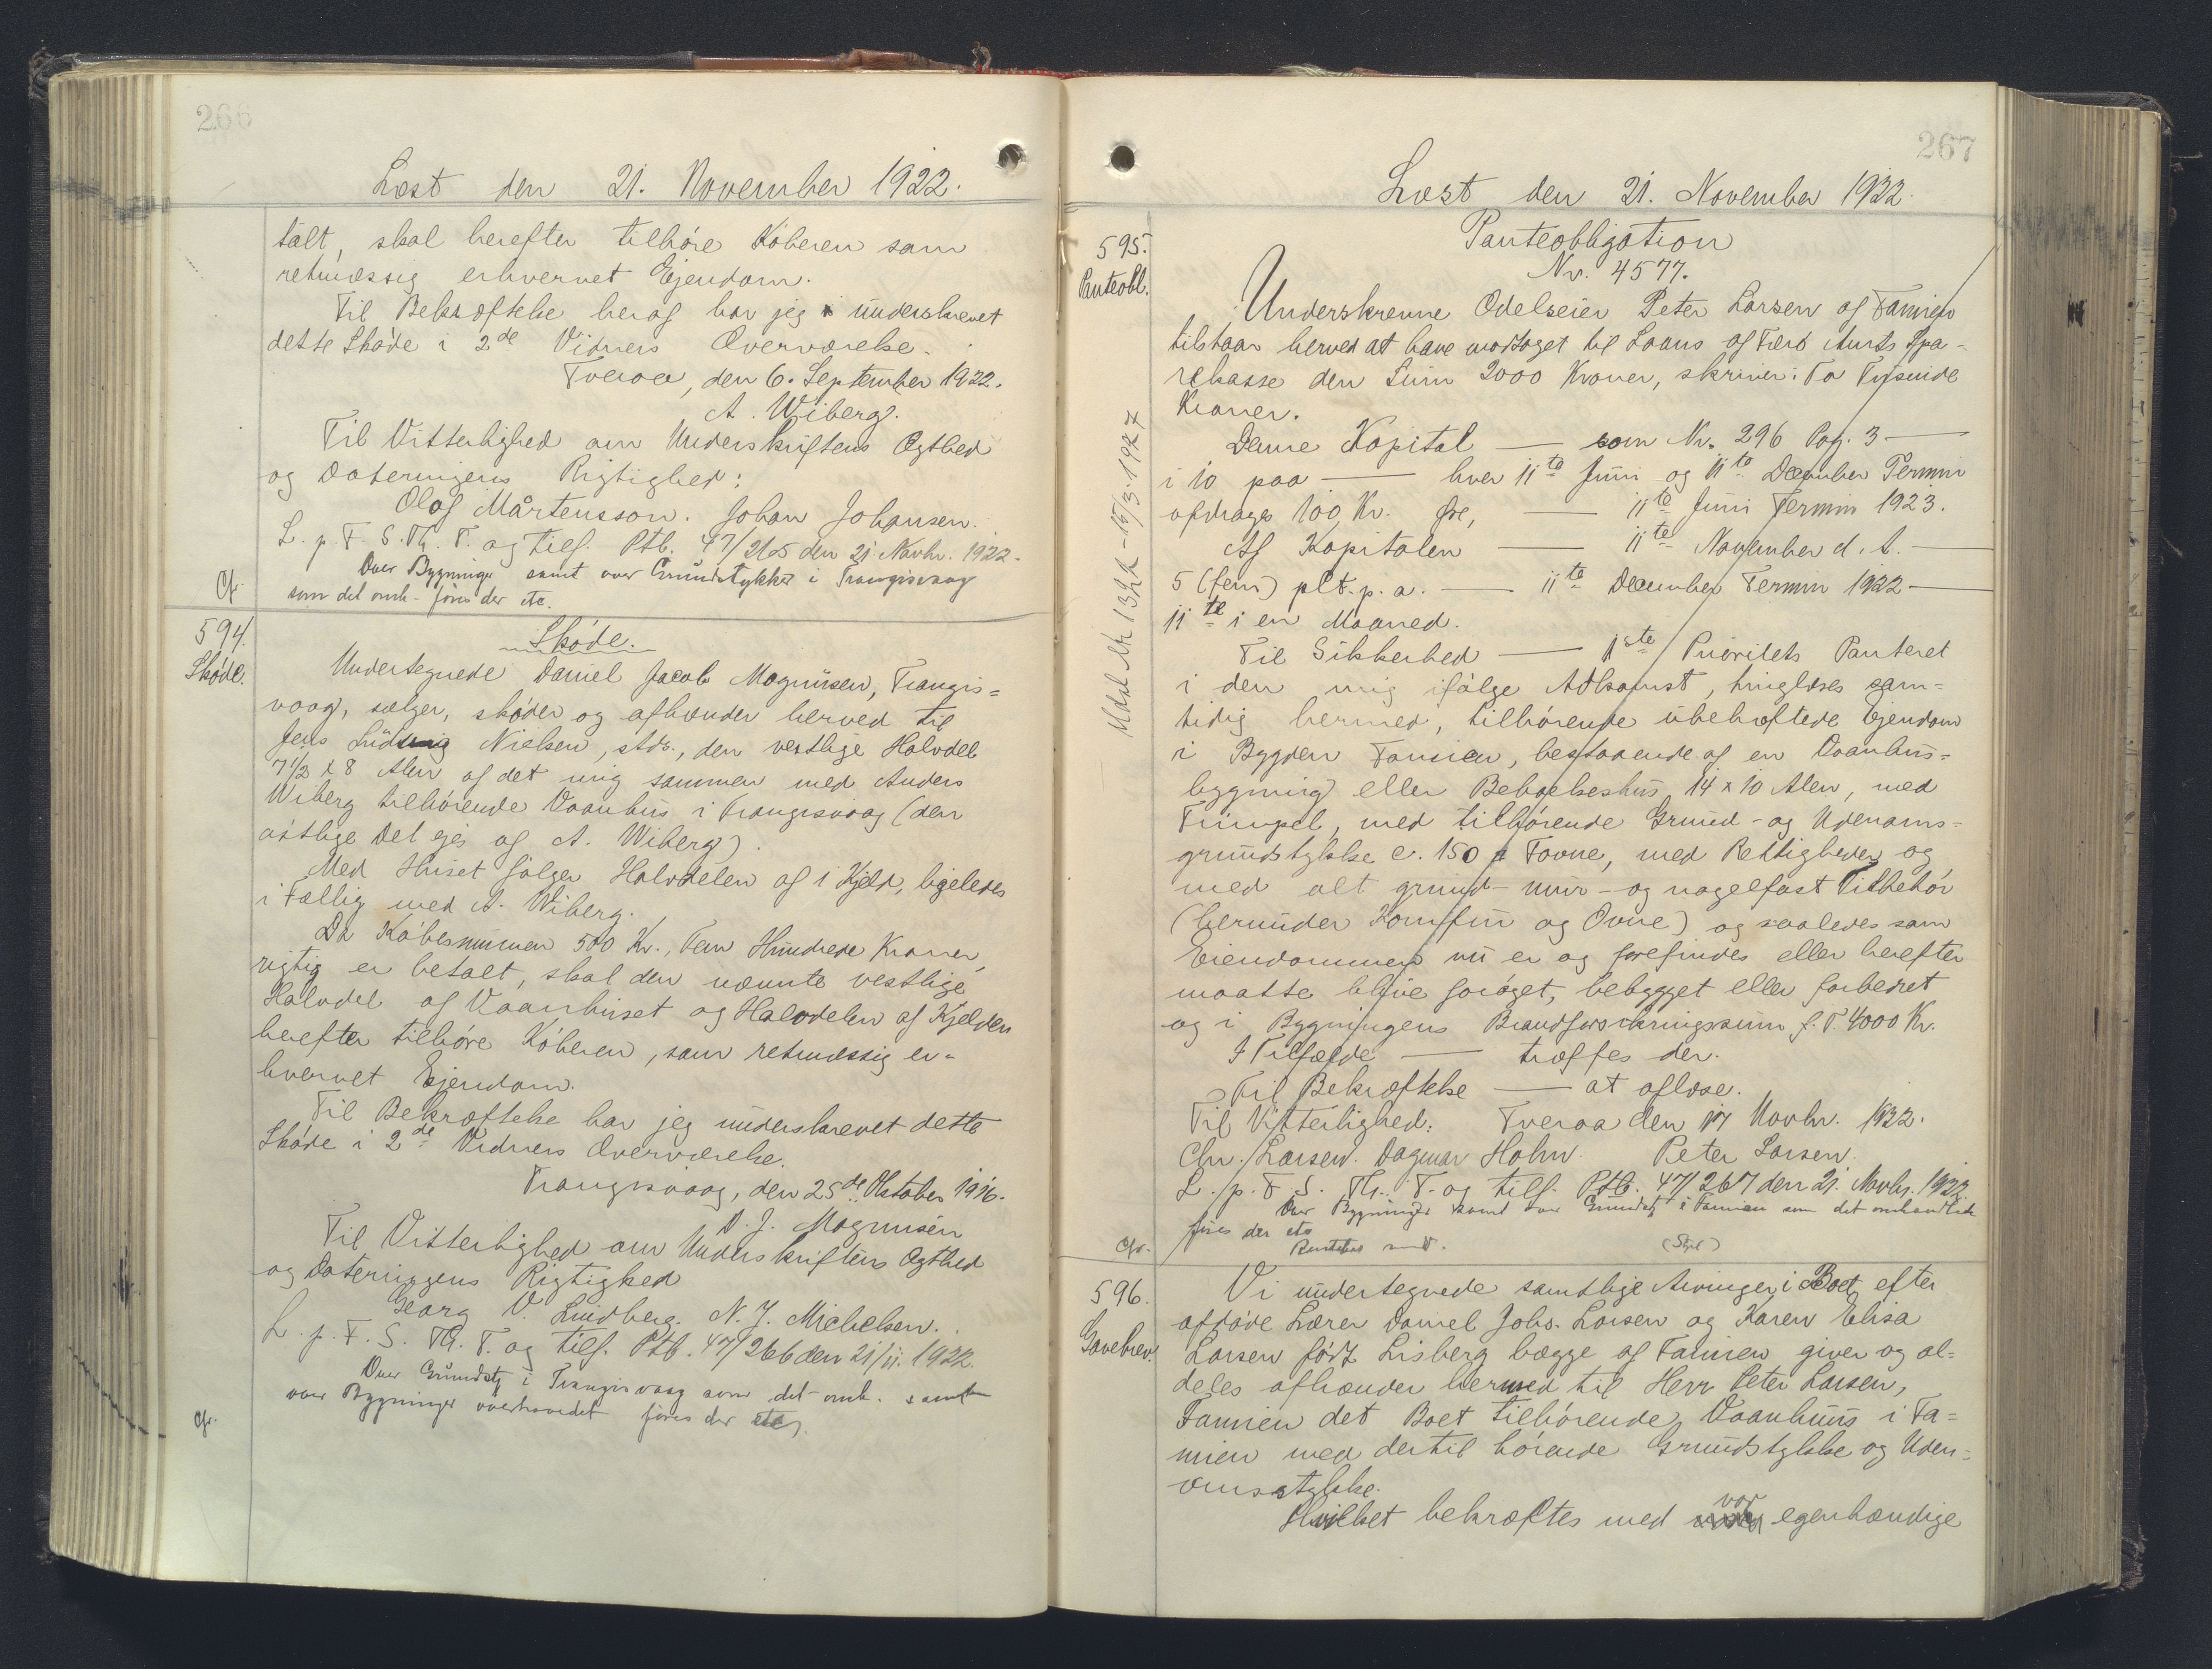 266
Læst den 21. November 1922.
talt, skal herefter tilhøre Køberen som
retmæssig erhvervet Ejendom.
Til Bekræftelse heraf har jeg underskrevet
dette Skøde i 2de Vidners Overværelse.
Tveraa, den 6. September 1922.
A. Wiberg.
Til Vitterlighed om Underskriftens Ægthed
og Dateringens Rigtighed:
Olaf Mårtensson. Johan Johansen.
L. p. F. S. Th. T. og tilf. Ptb. 47/265 den 21 Novbr. 1922.
Over Bygninger samt over Grundstykker i Trangisvaag
Cfr. som det omh. føres der etc.
594.
Skøde.
Skøde.
Undertegnede Daniel Jacob Magnusen, Trangis=
vaag, sælger, skøder og afhænder herved til
Jens Ludvig Nielsen, stds., den vestlige Halvdel
7 1/2 x 8 Alen af det mig sammen med Anders
Wiberg tilhørende Vaanhus i Trangisvaag (den
østlige Del ejes af A. Wiberg).
Med Huset følger Halvdelen af 1 Kjeld, ligeledes
i Fællig med A. Wiberg.
Da Købesummen 500 Kr., Fem Hundrede Kroner,
rigtig er betalt, skal den nævnte vestlige
Halvdel af Vaanhuset og Halvdelen af Kjelden
herefter tilhøre Køberen, som retmæssig er-
hvervet Ejendom.
Til Bekræftelse har jeg underskrevet dette
Skøde i 2de Vidners Overværelse.
Trangisvaag, den 25de Oktober 1916.
D. J. Magnusen
Til Vitterlighed om Underskriftens Ægthed
og Dateringens Rigtighed
Georg V. Lindberg. N. J. Michelsen.
L. p. F. S. Th. T. og tilf. Ptb. 47/266 den 21/11. 1922.
Over Grundst i Trangisvaag som det omh. samt
over Bygninger overhovedet føres der etc.
Cfr.
267
Læst den 21. November 1922.
595.
Panteobl.
Panteobligation
Nr. 4577.
Underskrevne Odelseier Peter Larsen af Famien
tilstaar herved at have modtaget til Laans af Færø Amts Spa-
rekasse den Sum 2000 Kroner, skriver: To Tusinde
Kroner.
Denne Kapital — som Nr. 296 Pag. 3 —
i 10 paa — hver 11te Juni og 11te December Termin
afdrages 100 Kr. Øre, — 11te Juni Termin 1923.
Af Kapitalen — 11te November d. A. —
5 (fem) pCt. p. a. — 11te December Termin 1922 —
11te i en Maaned.
Til Sikkerhed — 1ste Prioritets Panteret
i den mig ifølge Adkomst, tinglæses sam=
tidig hermed, tilhørende ubehæftede Ejendom
i Bygden Famien, bestaaende af en Vaanhus=
bygning eller Beboelseshus 14 x 10 Alen, med
Trimpel, med tilhørende Grund- og Udenoms=
grundstykke c. 150 Favne, med Rettigheder og
med alt grund- mur- og nagelfast Tilbehør
(herunder Komfur og Ovne) og saaledes som
Eiendommen nu er og forefindes eller herefter
maatte blive forøget, bebygget eller forbedret
og i Bygningens Brandforsikringssum f. T. 4000 Kr.
I Tilfælde — træffes der.
Til Bekræftelse — at aflæse.
Til Vitterlighed: Tveraa den 17 Novbr. 1922.
Chr. Larsen. Dagmar Holm. Peter Larsen.
L. p. F. S. Th. T. og tilf. Ptb. 47/267 den 21. Novbr. 1922.
Over Bygninger samt over Grundst i Famien som det omhandlede
føres der etc
Cfr.
Udsl. Nr 1322 - 15/3.1927
596.
Gavebrev.
Vi undertegnede samtlige Arvinger i Boet efter
afdøde Lærer Daniel Johs. Larsen og Karen Elisa
Larsen født Lisberg begge af Famien giver og al=
deles afhænder hermed til Herr Peter Larsen,
Famien det Boet tilhørende Vaanhuus i Fa=
mien med dertil hørende Grundstykke og Uden=
omsstykke.
Hvilket bekræftes med vor egenhændige